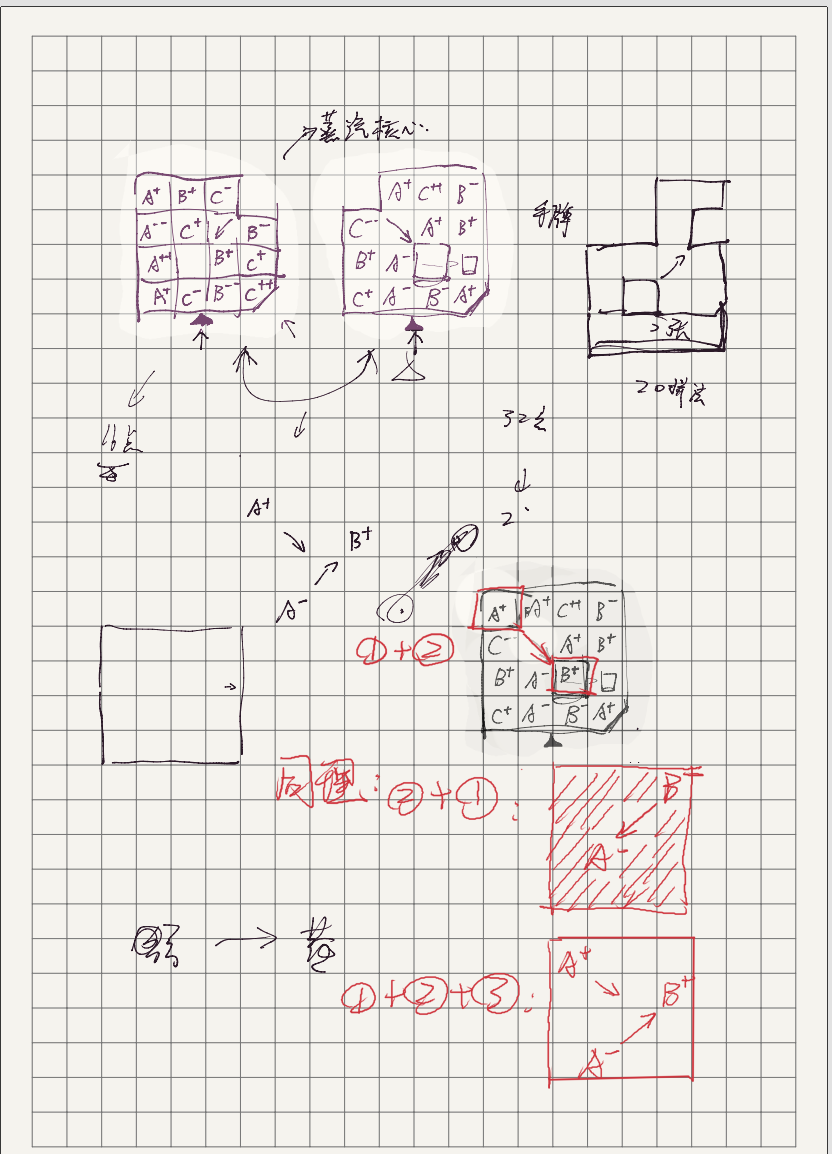 蒸汽核心
A+ B+ C-
A-- C+ B-
A++ B+ C+
A+ C- B-- C++
A+ C++ B-
C-- A+ B+
B+ A-
C+ A- B- A+
手牌
>张
20拼法
32点
2
A+
B+
A-
①+②
A+ A+ C++ B-
C-- A+ B+
B+ A- B+
C+ A- B- A+
同理：②+①：
B+
A-
①+②+③：
A+
B+
A-